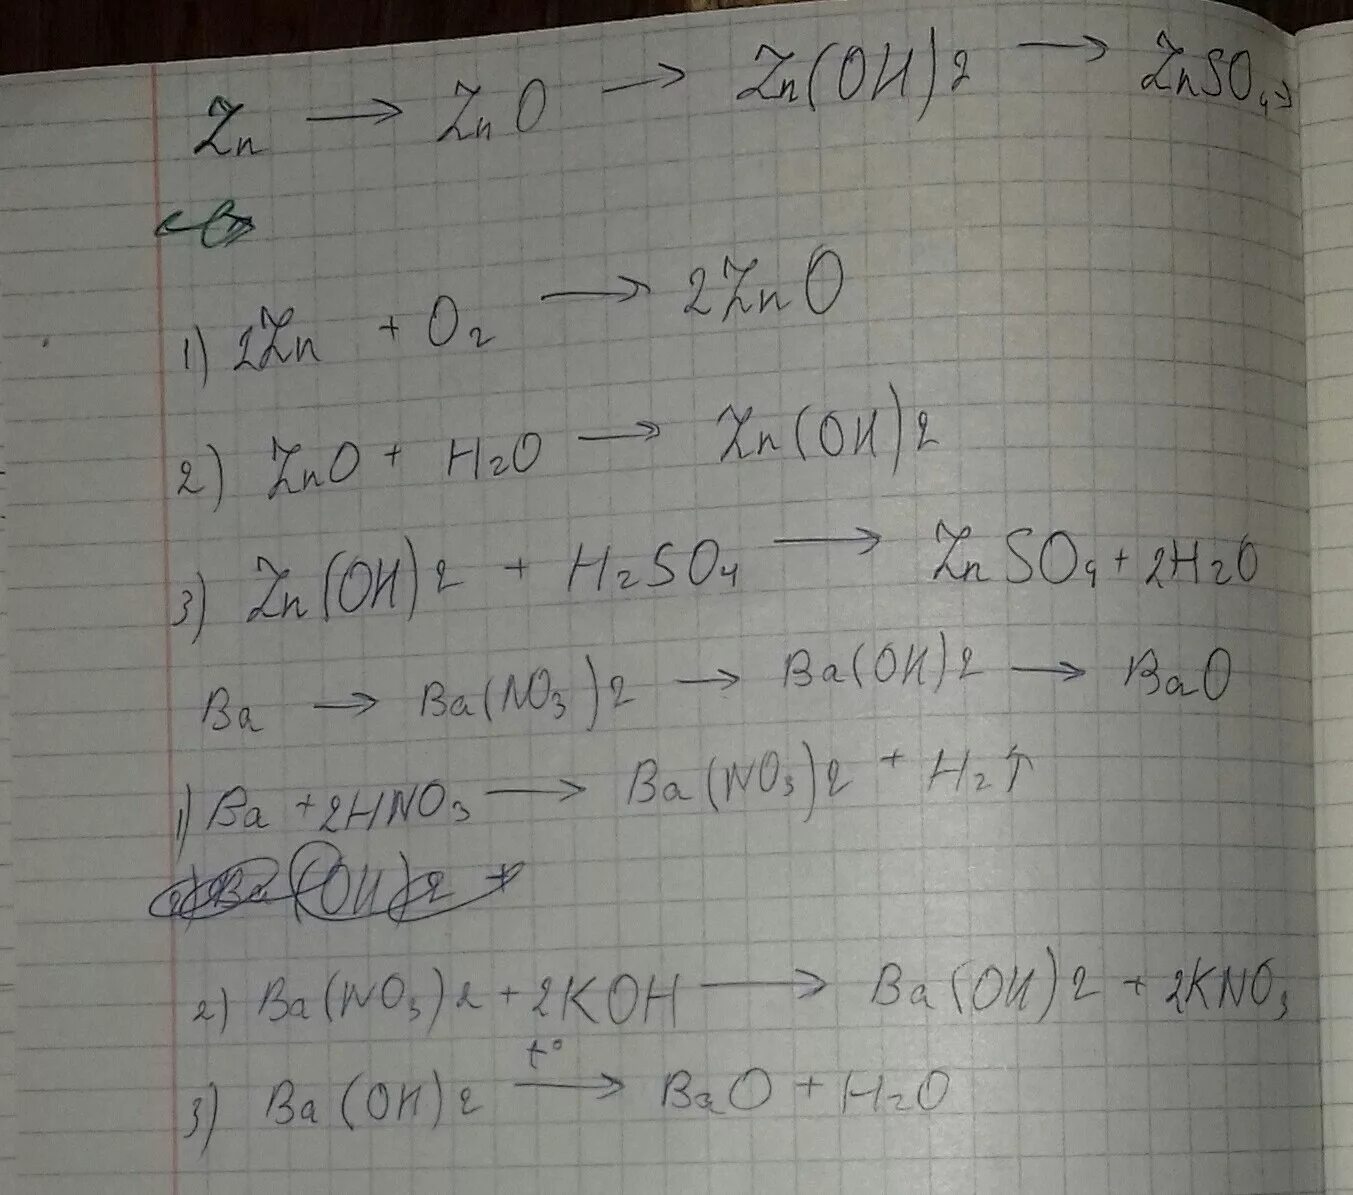 Zn → ZnO → Zn(OH)2 → ZnSO4→
1) 2Zn + O2 → 2ZnO
2) ZnO + H2O → Zn(OH)2
3) Zn(OH)2 + H2SO4 → ZnSO4 + 2H2O
Ba → Ba(NO3)2 → Ba(OH)2 → BaO
1) Ba + 2HNO3 → Ba(NO3)2 + H2↑
2) Ba(NO3)2 + 2KOH → Ba(OH)2 + 2KNO3
3) Ba(OH)2 t°→ BaO + H2O